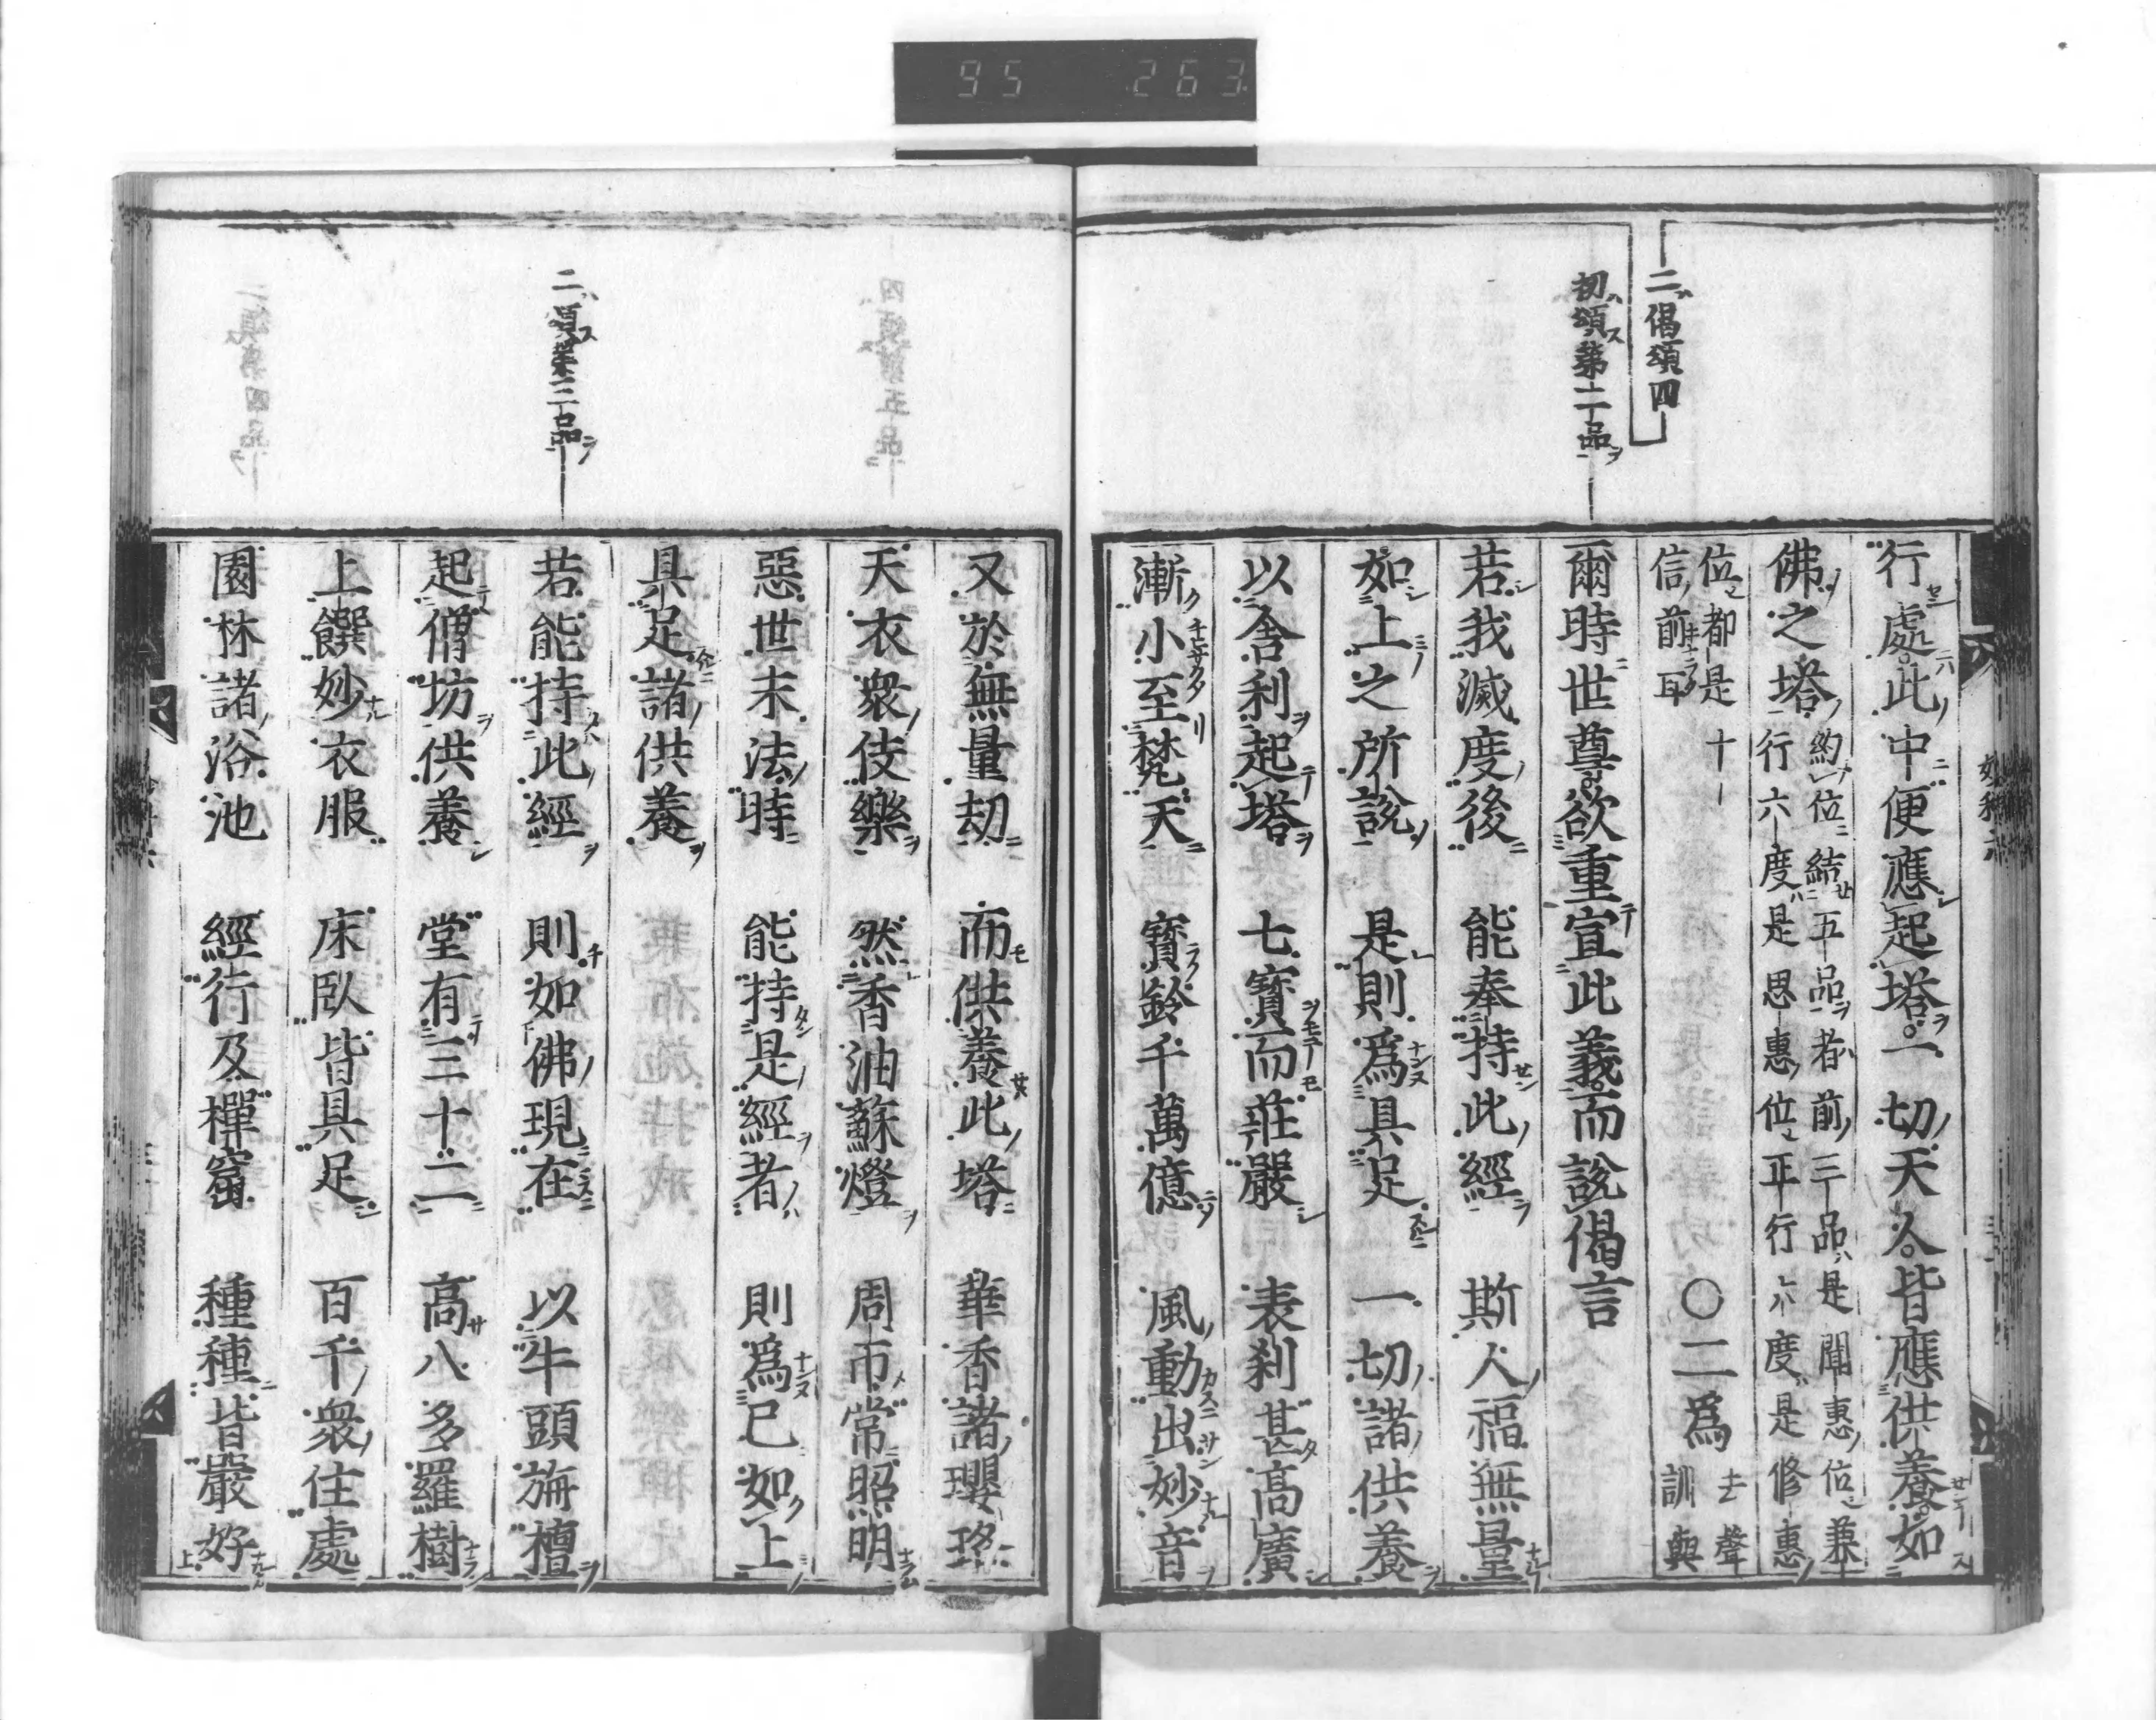 95 263
二偈頌四
初頌第二品
行處此中便應起塔一切天人皆應供養如
佛之塔
約位結五品者前三品是聞惠位兼
行六度是思惠位正行六度是修惠
位都是十
信前耳
〇二爲
去聲
訓與
爾時世尊欲重宣此義而說偈言
若我滅度後 能奉持此經 斯人福無量
如上之所說 是則爲具足 一切諸供養
以舍利起塔 七寶而莊嚴 表刹甚高廣
漸小至梵天 寶鈴千萬億 風動出妙音
二頌第三品
又於無量劫 而供養此塔 華香諸瓔珞
天衣衆伎樂 然香油蘇燈 周帀常照明
惡世末法時 能持是經者 則爲已如上
具足諸供養
若能持此經 則如佛現在 以牛頭旃檀
起僧坊供養 堂有三十二 高八多羅樹
上饌妙衣服 床臥皆具足 百千衆住處
園林諸浴池 經行及禪窟 種種皆嚴好